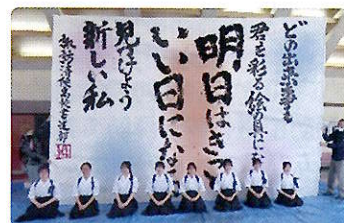 どの出来事も
君を彩る絵の具に
明日はきっ
いい日にな
見つけよう
新しい私
書道部